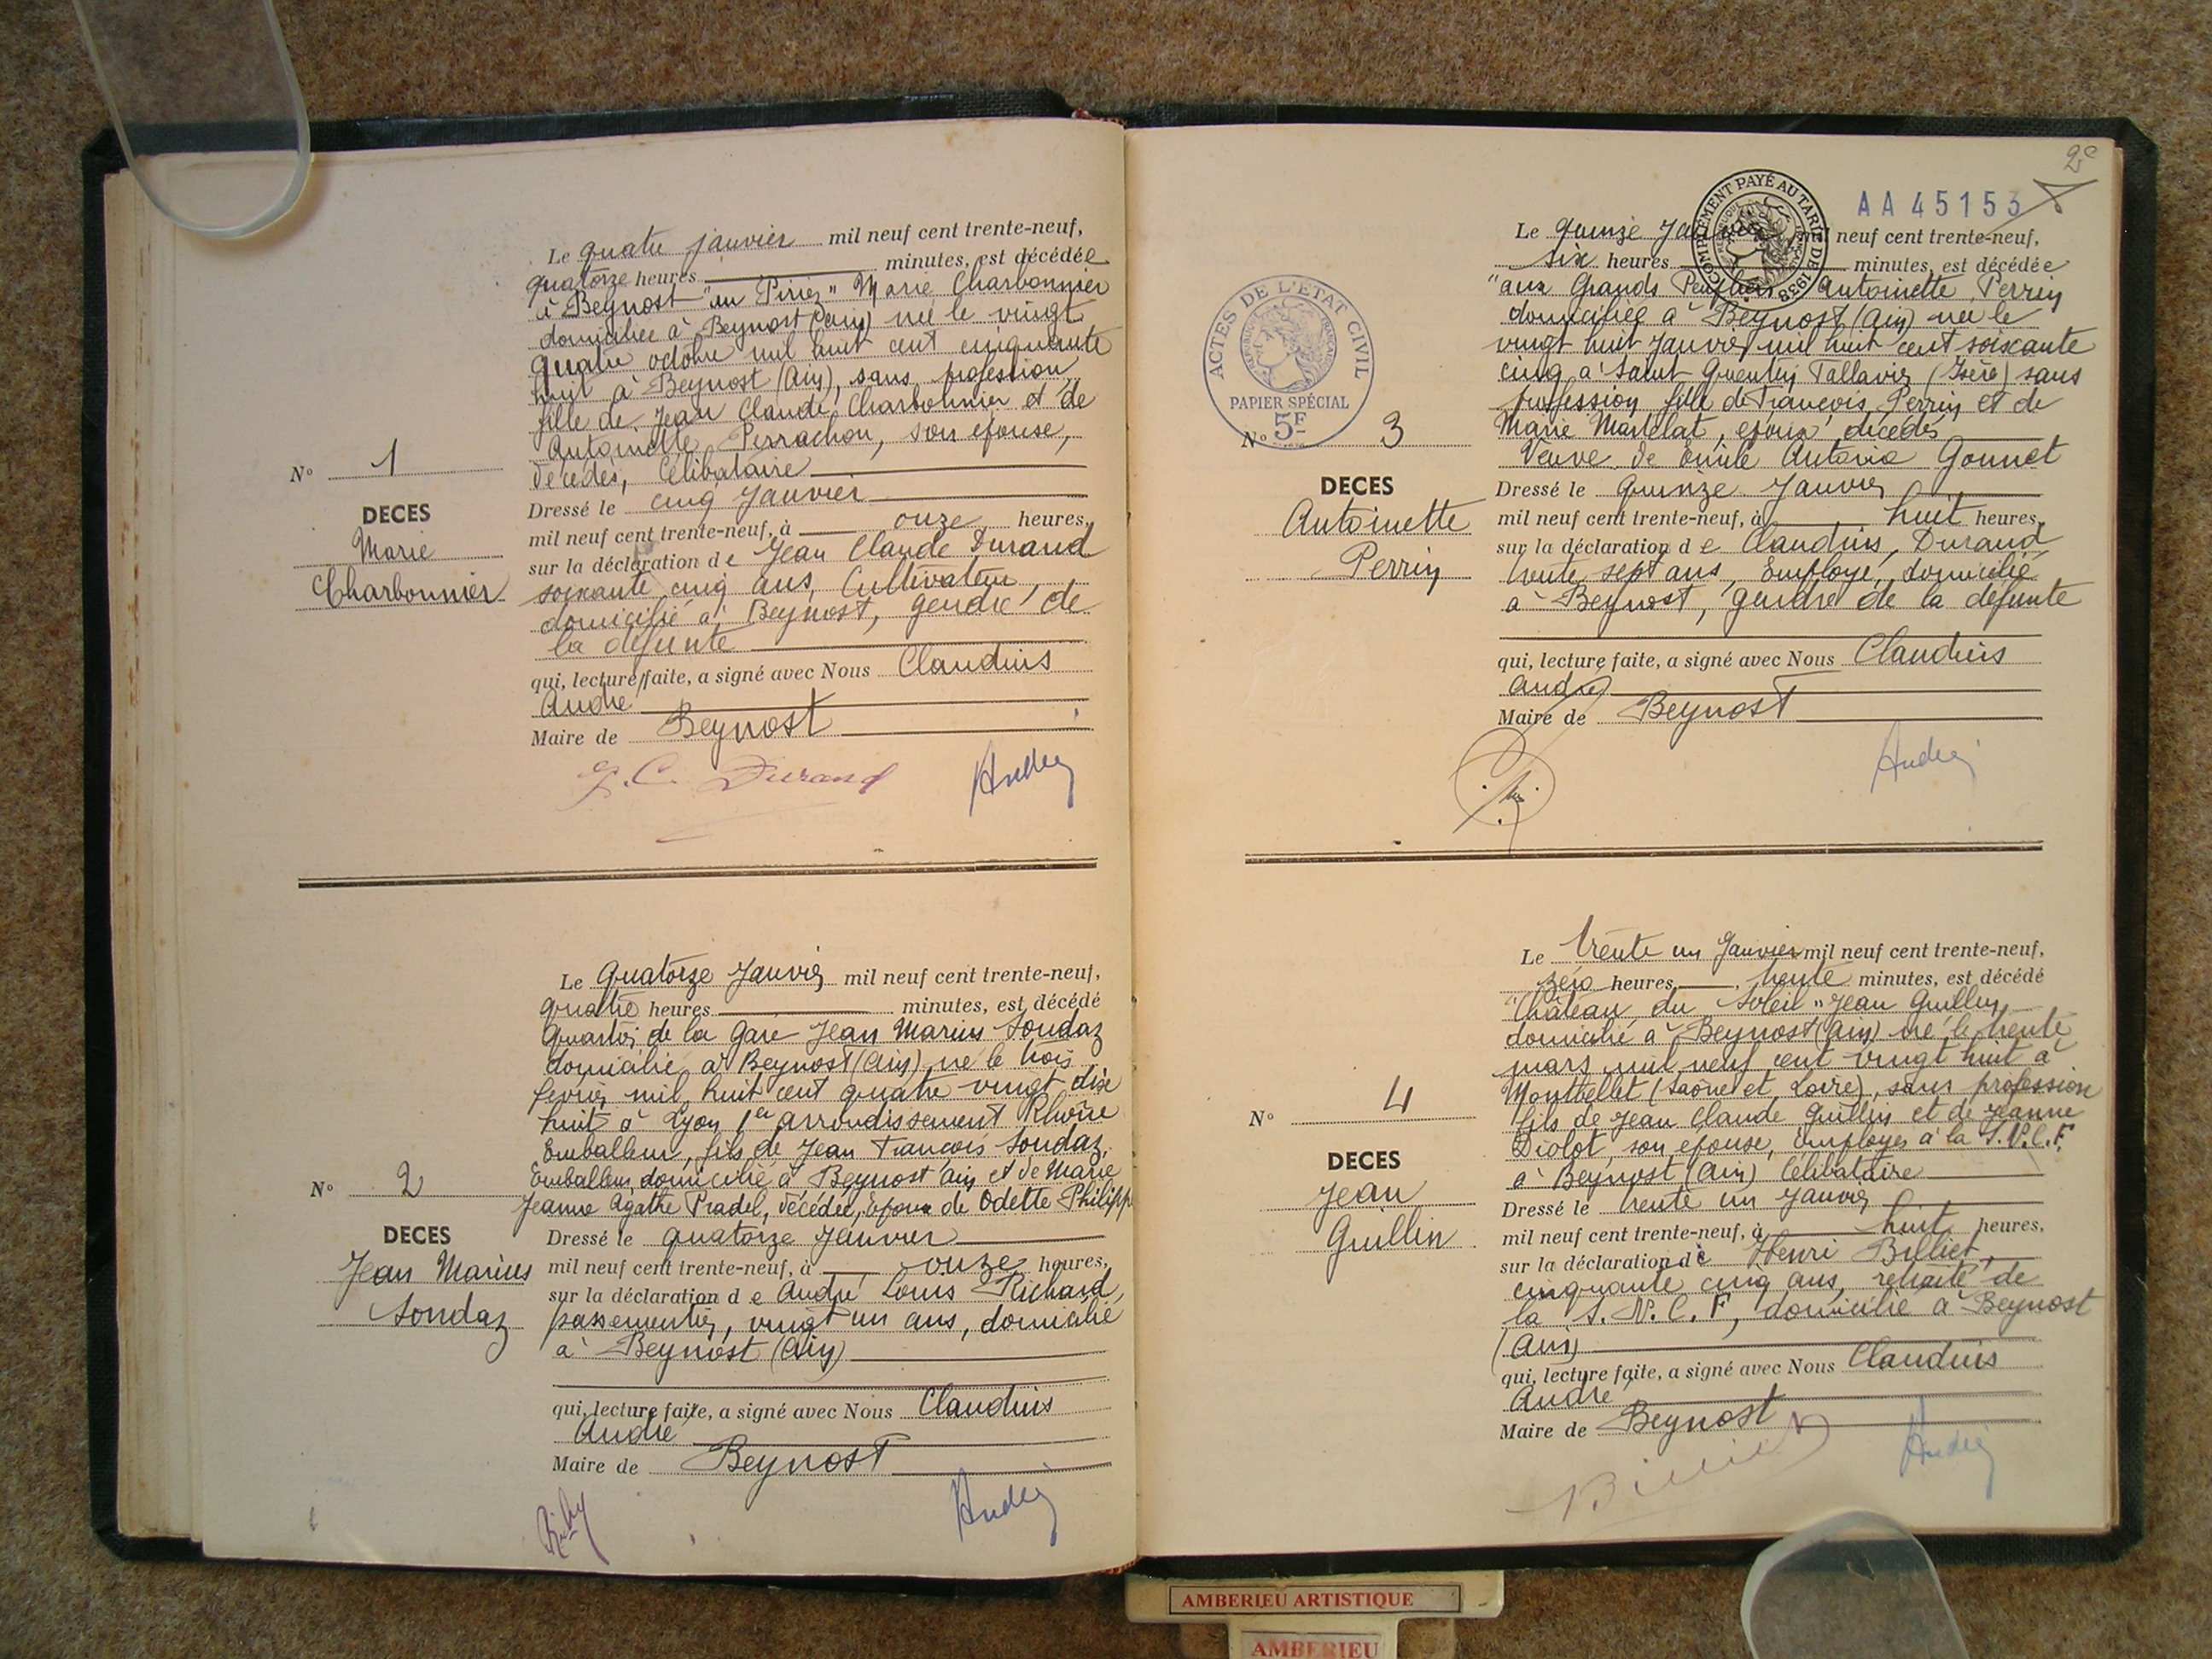 Le quatre janvier mil neuf cent trente-neuf,
quatorze heures minutes, est décédée
à Beynost "au Piriez" Marie Charbonnier
domiciliée à Beynost (Ain) née le vingt
quatre octobre mil huit cent cinquante
huit à Beynost (Ain), sans profession
fille de Jean Claude Charbonnier et de
Antoinette Perrachon, son épouse,
décédés, Célibataire
N° 1
DECES
Marie
Charbonnier
Dressé le cinq Janvier
mil neuf cent trente-neuf, à onze heures,
sur la déclaration de Jean Claude Durand
soixante cinq ans, Cultivateur,
domicilié à Beynost, gendre de
la défunte
qui, lecture faite, a signé avec Nous Claudius
André
Maire de Beynost
J. C. Durand André
Le Quatorze Janvier mil neuf cent trente-neuf,
quatre heures minutes, est décédé
Quartier de la Gare Jean Marius Sondaz
domicilié à Beynost (Ain) né le trois
février mil huit cent quatre vingt dix
huit à Lyon 1er arrondissement Rhône
Emballeur, fils de Jean François Sondaz,
Emballeur domicilié à Beynost Ain et de Marie
Jeanne Agathe Pradel, décédée, époux de Odette Philipp
N° 2
DECES
Jean Marius
Sondaz
Dressé le quatorze Janvier
mil neuf cent trente-neuf, à onze heures,
sur la déclaration de André Louis Richard,
passementier, vingt un ans, domicilié
à Beynost (Ain)
qui, lecture faite, a signé avec Nous Claudius
André
Maire de Beynost
André
2e
AA 45153
COMPLEMENT PAYÉ AU TARIF DE 1938
Le quinze Janvier mil neuf cent trente-neuf,
six heures minutes, est décédée
"aux Grands Peupliers" Antoinette Perrin
domiciliée à Beynost (Ain) née le
vingt huit Janvier mil huit cent soixante
cinq à Saint Quentin Fallavier (Isère) sans
profession fille de François Perrin et de
Marie Martelat, époux décédés
Veuve de Emile Antoine Gonnet
ACTES DE L'ETAT CIVIL
REPUBLIQUE FRANÇAISE
PAPIER SPÉCIAL
5F
N° 3
DECES
Antoinette
Perrin
Dressé le Quinze Janvier
mil neuf cent trente-neuf, à huit heures,
sur la déclaration de Claudius Durand
trente sept ans, Employé, domicilié
à Beynost, gendre de la défunte
qui, lecture faite, a signé avec Nous Claudius
André
Maire de Beynost
André
Le trente un Janvier mil neuf cent trente-neuf,
zéro heures, trente minutes, est décédé
"Château du Soleil" Jean Guillin
domicilié à Beynost (Ain) né le trente
mars mil neuf cent vingt huit à
Montbellet (Saône et Loire), sans profession
fils de Jean Claude Guillin et de Jeanne
Diolot, son épouse, employés à la S.N.C.F.
à Beynost (Ain) Célibataire
N° 4
DECES
Jean
Guillin
Dressé le trente un Janvier
mil neuf cent trente-neuf, à huit heures,
sur la déclaration de Henri Billiet,
cinquante cinq ans, retraité de
la S.N.C.F, domicilié à Beynost
(Ain)
qui, lecture faite, a signé avec Nous Claudius
André
Maire de Beynost
Billiet André
AMBERIEU ARTISTIQUE
AMBERIEU